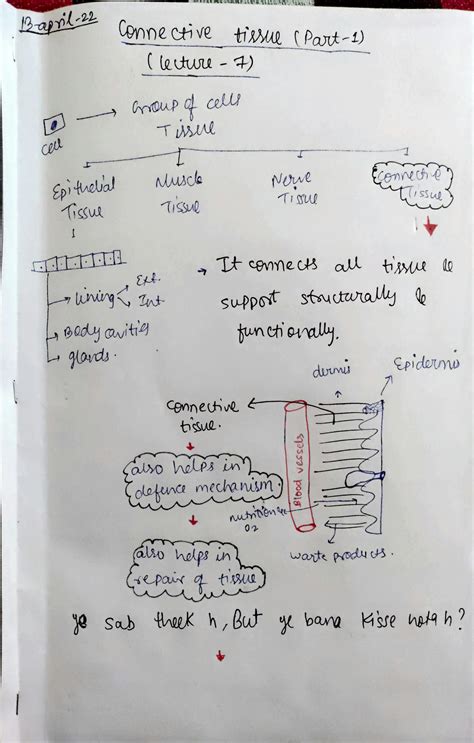 13-april-22
Connective tissue (Part-1)
(lecture - 7)
Group of cells
Tissue
cell
Epithelial
Tissue
Muscle
Tissue
Nerve
Tissue
Connective
Tissue
lining
Ext.
Int
Body cavities
glands.
It connects all tissue &
support structurally &
functionally.
dermis
Epidermis
connective
tissue.
Blood vessels
also helps in
defence mechanism
nutrition &
O2
waste products.
also helps in
repair of tissue
ye sab theek h, But ye bana kisse hota h?